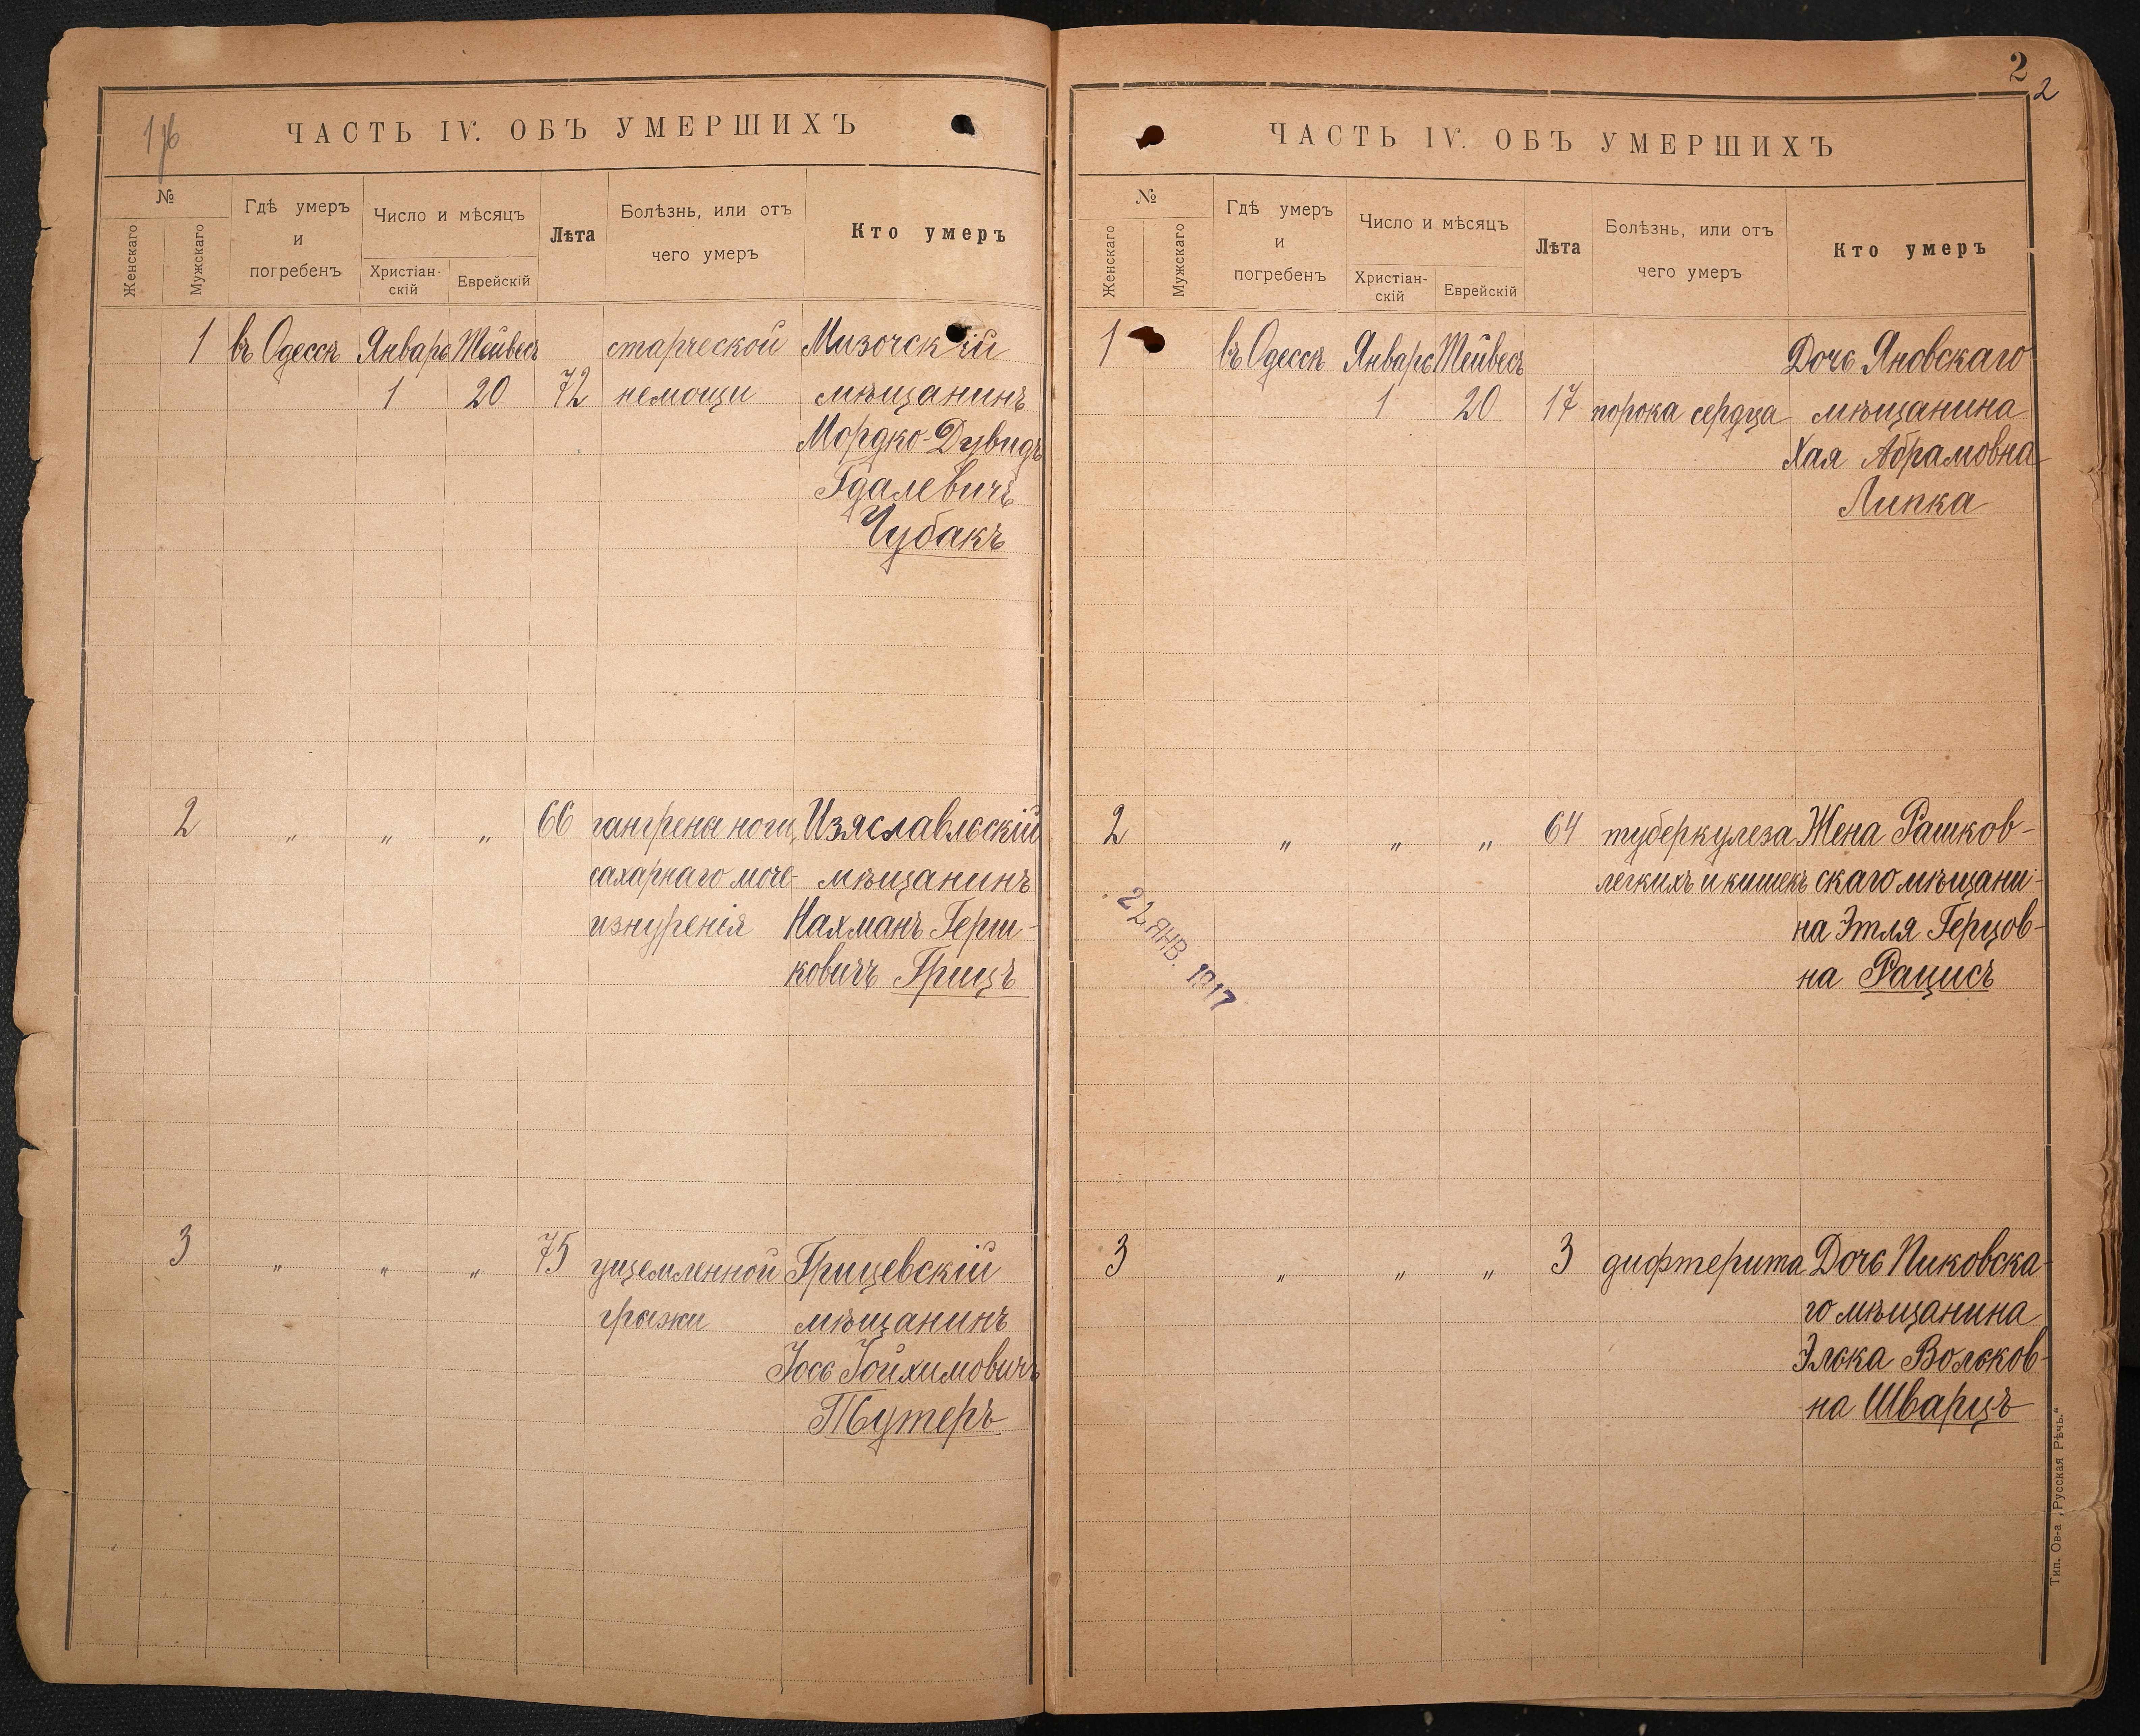 ЧАСТЬ IV. ОБЪ УМЕРШИХЪ
№
Женскаго
Мужскаго
Гдѣ умеръ
и
погребенъ
Число и мѣсяцъ
Христіан-
скій
Еврейскій
Лѣта
Болѣзнь, или отъ
чего умеръ
Кто умеръ
1 въ Одессѣ Январь Тейвесъ старческой Мизочскій
1 20 72 немощи мѣщанинъ
Мордко-Дувидъ
Гдалевичъ
Чубакъ
2 „ „ „ 66 гангрены ноги, Изяславльскій
сахарнаго моче- мѣщанинъ
изнуренія Нахманъ Герш-
ковичъ Грицъ
3 „ „ „ 75 ущемленной Грицевскій
грыжи мѣщанинъ
Іось Іойхимовичъ
Тутеръ
2
2
ЧАСТЬ IV. ОБЪ УМЕРШИХЪ
№
Женскаго
Мужскаго
Гдѣ умеръ
и
погребенъ
Число и мѣсяцъ
Христіан-
скій
Еврейскій
Лѣта
Болѣзнь, или отъ
чего умеръ
Кто умеръ
1 въ Одессѣ Январь Тейвесъ Дочь Яновскаго
1 20 17 порока сердца мѣщанина
Хая Абрамовна
Липка
2 „ „ „ 64 туберкулеза Жена Рашков-
легкихъ и кишекъ скаго мѣщани-
на Этля Герцов-
на Рацисъ
22 ЯНВ. 1917
3 „ „ „ 3 дифтерита Дочь Пиковска-
го мѣщанина
Элька Вольков-
на Шварцъ
Тип. Ов-а „Русская Рѣчь.“